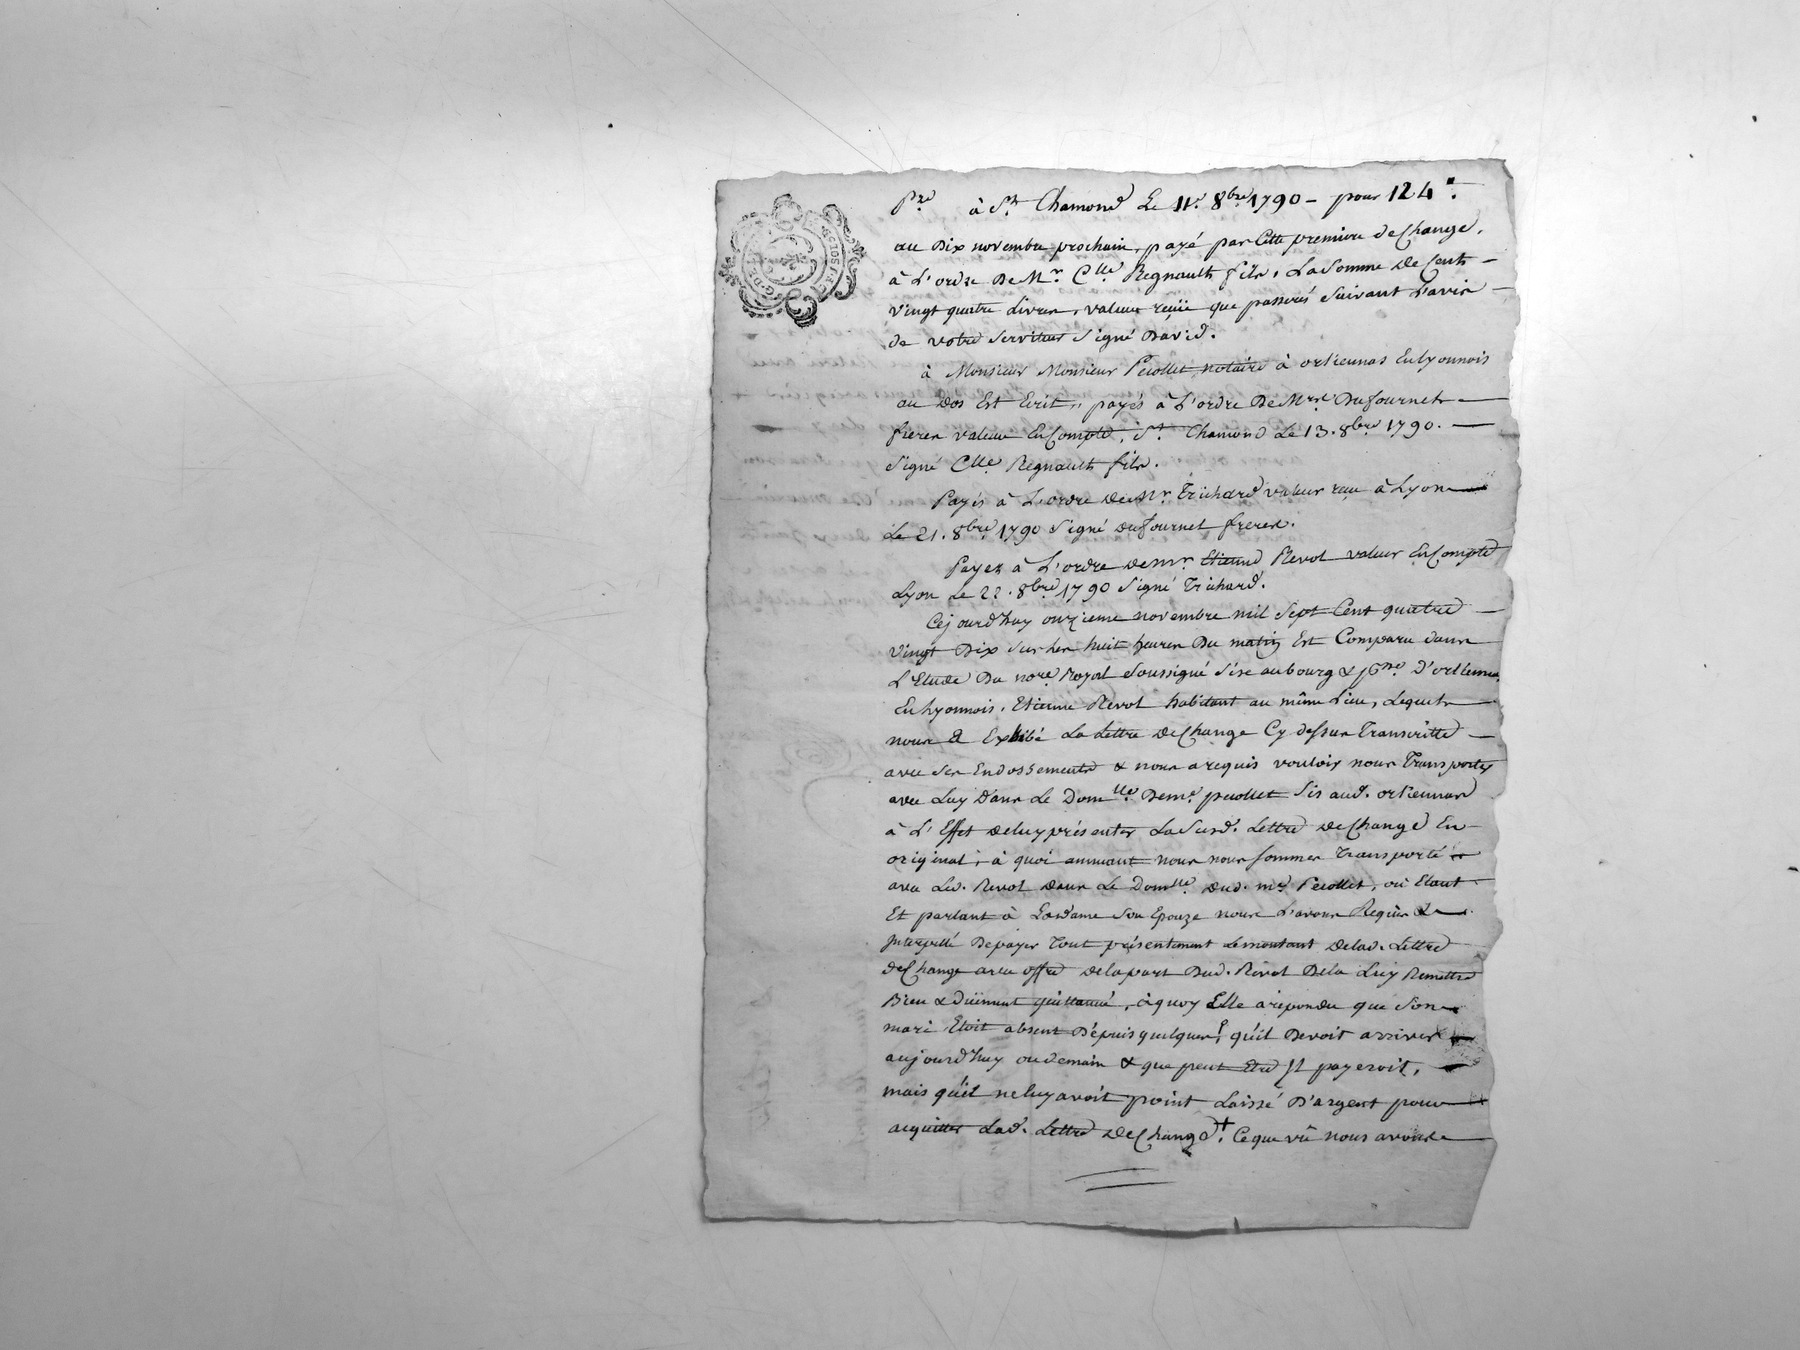 Pre à St Chamond Le 11e 8bre 1790 - pour 124 ".
au Dix novembre prochain, payé par Cette premiere de Change,
à L'ordre De Mr. Clle Regnault fils, La Somme De Cent
vingt quatre Livres, valeur reçüe que passerés Suivant L'avis
de votre Serviteur Signé David.
à Monsieur Monsieur Peiollet, notaire à orlienas En lyonnois
au Dos Est Ecrit, payés à L'ordre De Mrs. Dufournet
freres valeur En Compte, St. Chamond Le 13. 8bre 1790.
Signé Clle Regnault fils.
Payés à L'ordre de Mr. Trichard valeur reçu à Lyon
Le 21. 8bre 1790 Signé Dufournel freres.
Payez à L'ordre de Mr. Etienne Revol valeur En Compte
Lyon Le 22. 8bre 1790 Signé Trichard.
Cejourd'huy onzieme novembre mil Sept Cent quatre
vingt Dix Sur Les huit heures Du matin Est Comparu dans
L'Etude Du nore. Royal Soussigné Size au bourg & psse. D'orlienas
En Lyonnois, Etienne Revol habitant au même Lieu, Lequel
nous a Exhibé La Lettre de Change Cy dessus Transcritte
avec Ses Endossements & nous a requis vouloir nous Transporter
avec Luy dans Le Domlle. De me. peiollet Sis aud. orlienas
à L'Effet de luy présenter La Susd. Lettre de Change En
original ; à quoi annuant nous nous Sommes Transporté
avec Led. Revol dans Le Domlle. dud. me. Peiollet, où Etant
Et parlant à La dame Son Epouze nous L'avons Requis &
Interpellé De payer Tout présentement Le montant de lad. Lettre
de Change avec offre de la part Dud. Revol De la Luy Remettre
Bien & Düement quittancé, à quoy Elle a repondu que Son
mari Etoit absent Depuis quelques J. qu'il Devoit arriver
aujourd'huy ou demain & que peut Etre Il payeroit,
mais qu'il ne luy avoit point Laissé D'argent pour
acquitter Lad. Lettre de Change +. Ce que vû nous avons